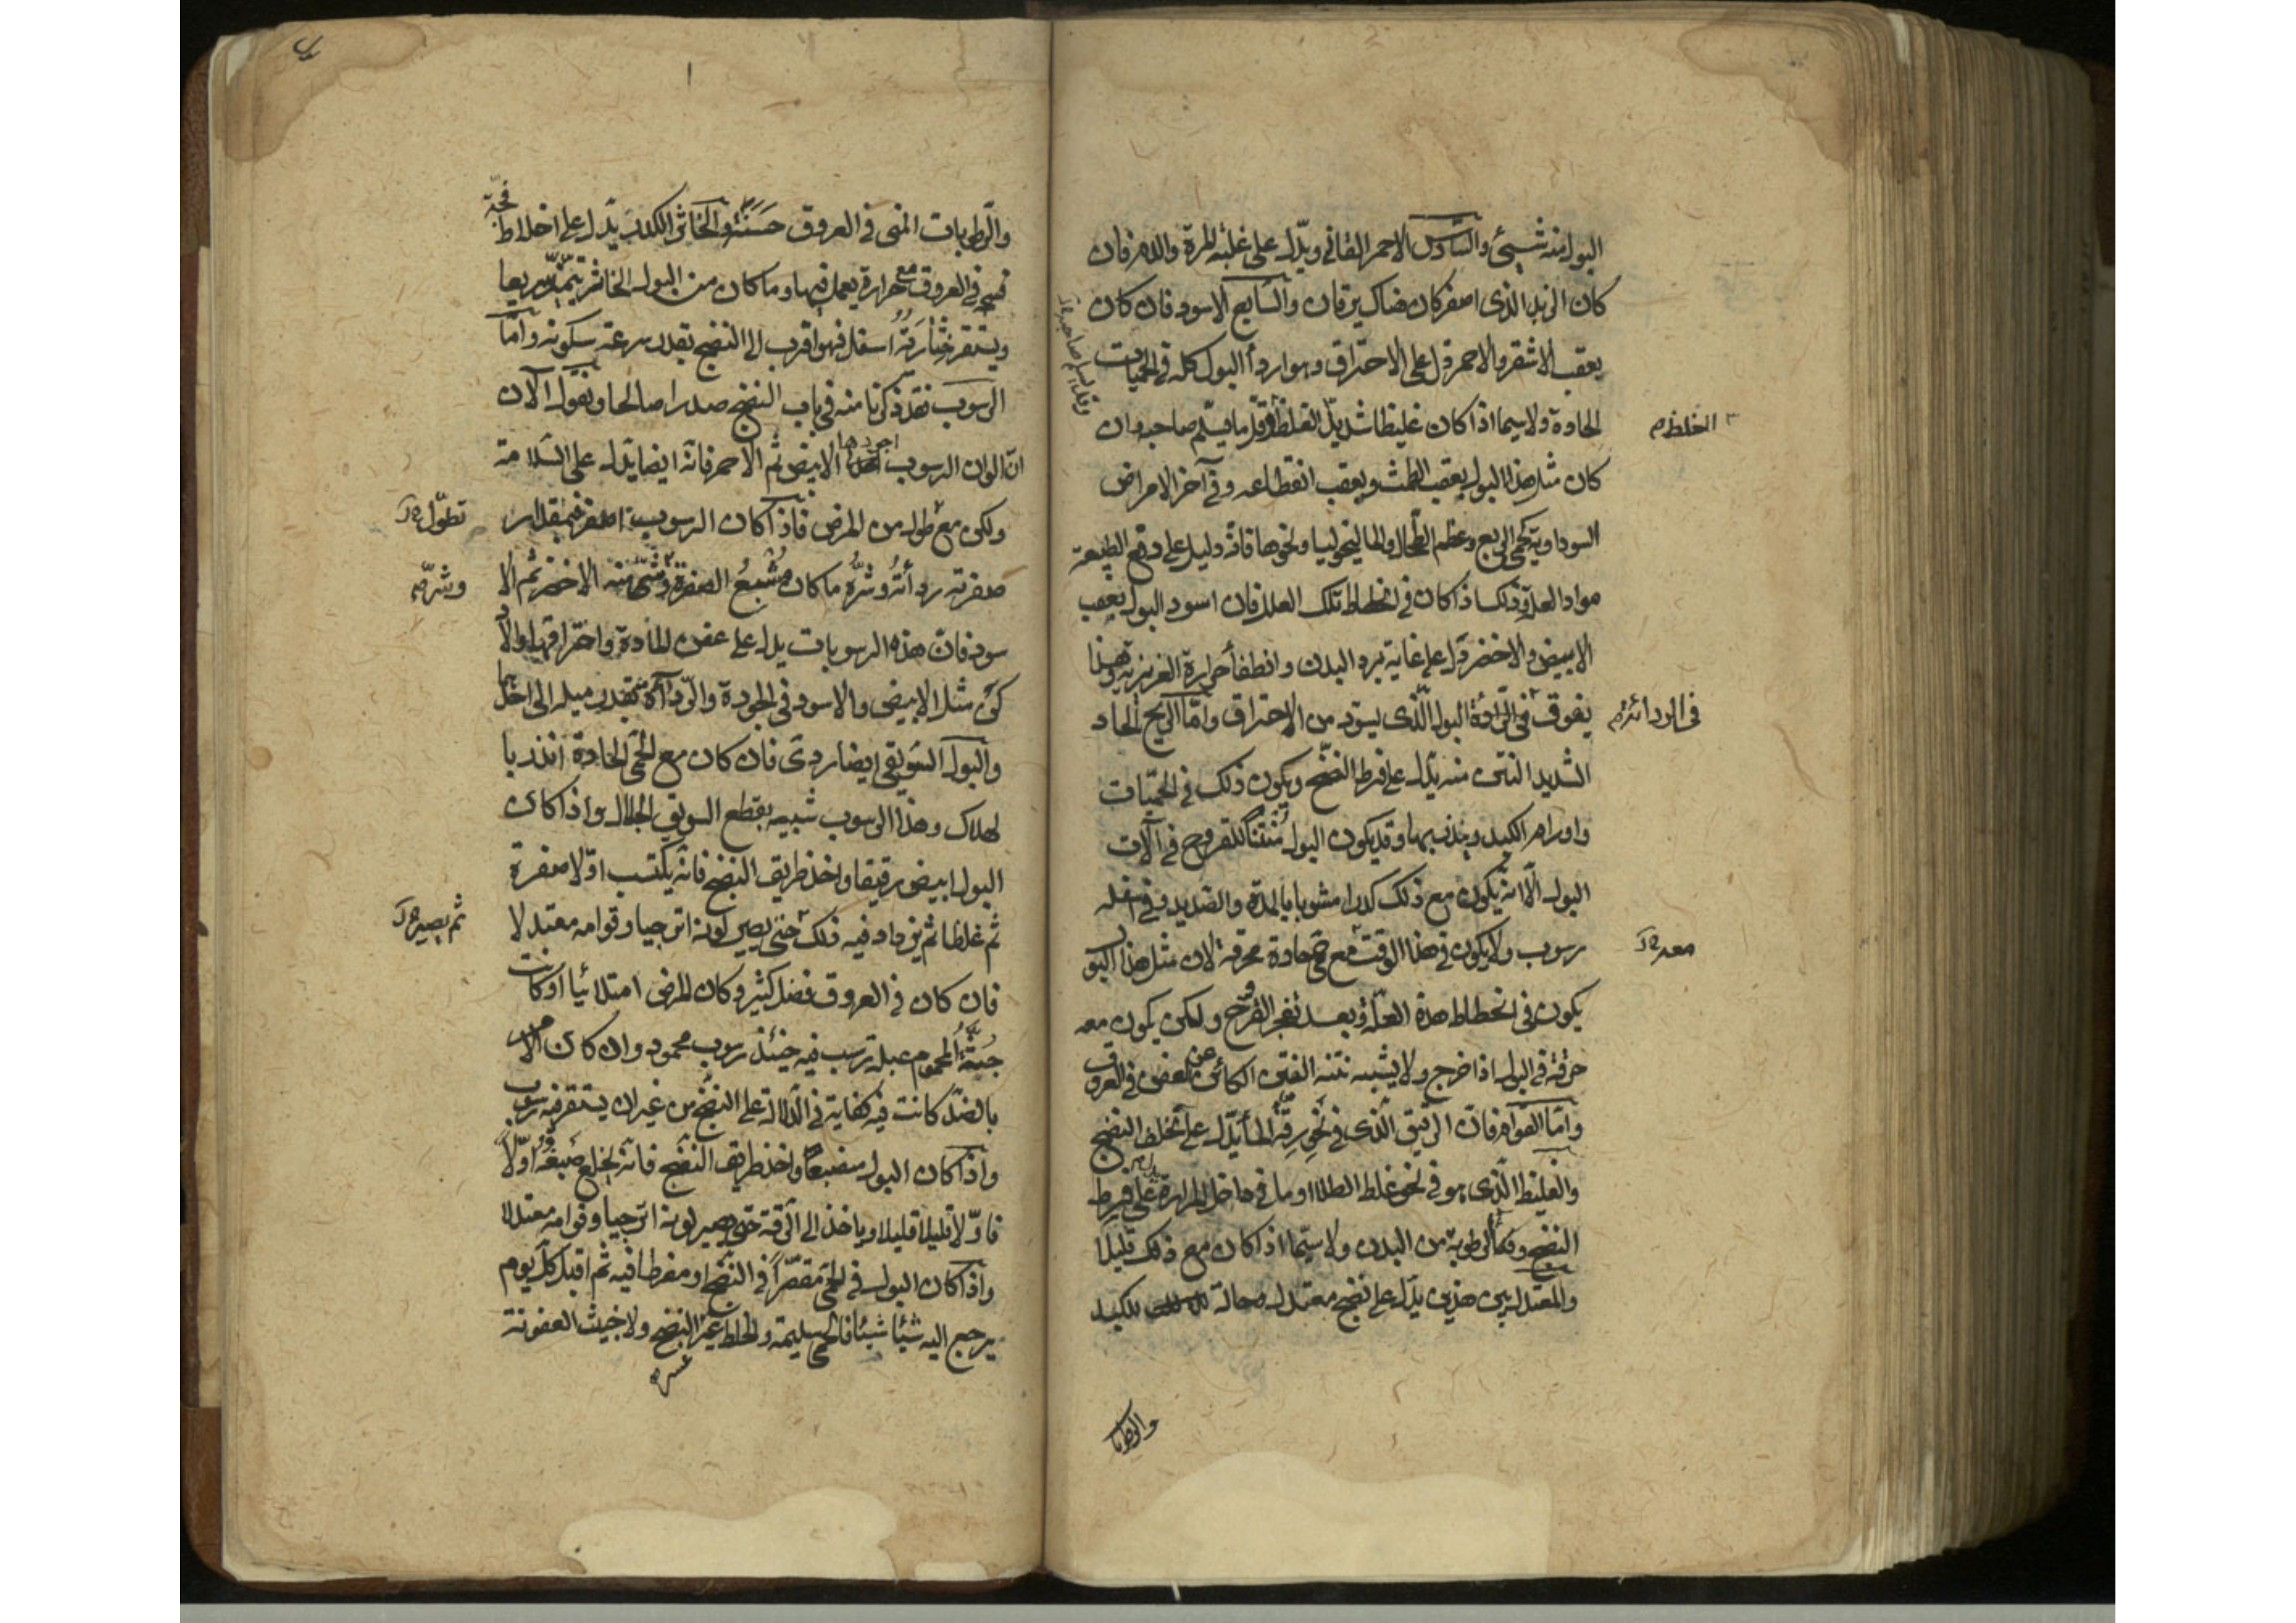 البول منه شيئ والسادس الاحمر القاني ويدل على غلبة المرة والدم فان
كان الزبد الذى اصفر كان هناك يرقان والسابع الاسود فان كان
يعقب الاشقر والاحمر دل على الاحتراق وهو اردأ البول كله فى الحميات
الحادة ولا سيما اذا كان غليظا شديد الغلظ وقل ما يسلم صاحبه وان
الخلط
كان مثل هذا البول يعقب الطمث ويعقب انقطاعه وفى آخر الامراض
السوداوية كحمى الربع وعظم الطحال والماليخوليا ونحوها فانه دليل على دفع الطبيعة
مواد العلة وذلك اذا كان فى انحطاط تلك العلل فان اسود البول بعقب
الابيض والاخضر دل على غاية برد البدن وانطفأ حرارة الغريزية وهذا
يفوق فى الرداءة البول الذى يسود من الاحتراق وامّا الريح الحاد
فى الردائة
الشديد النتن منه يدل على فرط النضج ويكون ذلك فى الحميّات
واورام الكبد وبجنبها وقد يكون البول منتنا لقروح فى آلات
البول الّا انه يكون مع ذلك كدرا مشوبا بالمدة والصديد وفى اسفله
رسوب ولا يكون فى هذا الوقت مع حمى حادة محرقة لان مثل هذا البو
معه
يكون فى انحطاط هذه العلة وبعد تفجر القرح ولكن يكون معه
حرقة فى البول اذا خرج ولا يشبه نتنه النتن الكائن عن العفن فى العروق
وامّا القوام فان الرقيق الذى فى نحو رقة الماء يدل على تخلف النضج
والغليظ الذى هو فى نحو غلظ الطلا او ما فى داخل المرارة على فرط
النضج وفناء الرطوبة من البدن ولا سيّما اذا كان مع ذلك قليلا
والمعتدل بين هذين يدل على نضج معتدل وحالة للكبد
والرطوبا
والرّطوبات التى فى العروق حَسَنَة والخاثر الكدر يدل على اخلاط فجة
فجة فى العروق مع حرارة يعمل فيها وما كان من البول الخاثر يتميّز سريعا
ويستقر خثارته اسفل فهو اقرب الى النضج بقدر سرعة سكونه وامّا
الرسوب فقد ذكرنا منه فى باب النضج صدرا صالحا ونقول الآن
انّ الوان الرسوب اجودها الابيض ثم الاحمر فانه ايضا يدل على السّلامة
ولكن مع طول من المرض فاذا كان الرسوب اصفر فبمقدار
تطوّل
صفرته رداءته وشرّه ما كان مُشبعُ الصفرة وشر منه الاخضر ثم الا
وشرّه
سود فانّ هذه الرسوبات يدل على عفن المادة واحتراقها والا
كن مثل الابيض والاسود فى الجودة والرداءة بقدر ميله الى احدها
والبول السويقى ايضا ردى فان كان مع الحمى الحادة انذر با
لهلاك وهذا الرسوب شبيه بقطع السويق الجلال واذا كان
البول ابيض رقيقا واخذ طريق النضج فانه يكتسب اولا صفرة
ثم غلظا ثم يزداد فيه ذلك حتى يصير لونه اترجيا وقوامه معتدلا
ثم يصير
فان كان فى العروق فضل كثير وكان المرض امتلائيا او كانت
جثّةُ المحموم عبلة رسب فيه حينئذ رسوب محمود وان كان الامر
بالضدّ كانت فيه كفاية فى الدلالة على النضج من غير ان يستقر فيه رسوب
واذا كان البول منصبغا واخذ طريق النضج فانه يخلع صبغه اوّلا
فاوّلا قليلا قليلا وياخذ الى الرقة حتى يصير لونه اترجيا وقوامه معتدلا
واذا كان البول فى الحمى مقصّراً فى النضج او مفرطا فيه ثم اقبل كل يوم
يرجع اليه شيئا شيئا فالحمى سليمة والخلط غير النضج ولا خبيث العفونة
عسر